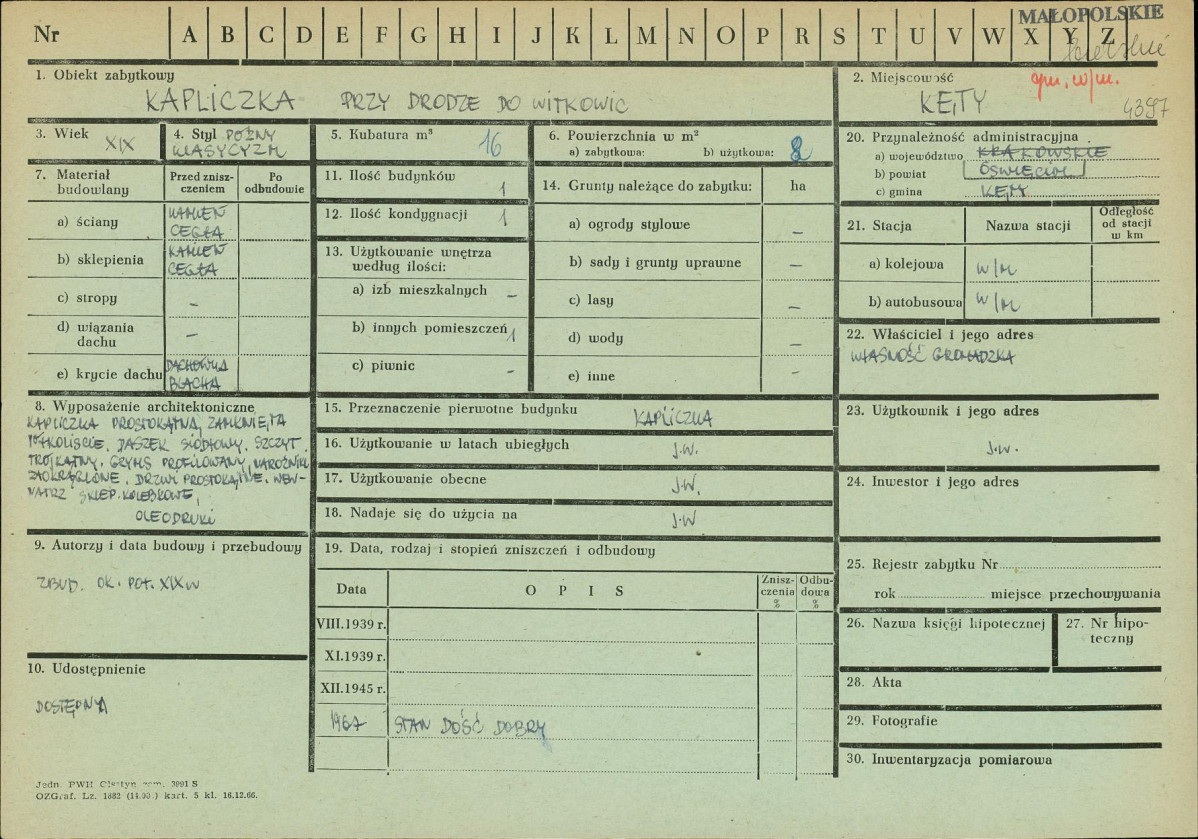 MAŁOPOLSKIE
Nr A B C D E F G H I J K L M N O P R S T U V W X Y Z
1. Obiekt zabytkowy
KAPLICZKA PRZY DRODZE DO WITKOWIC
2. Miejscowość gm. w/m.
KĘTY 4397
3. Wiek XIX
4. Styl PÓŹNY
KLASYCYZM
5. Kubatura m³ 16
6. Powierzchnia w m²
a) zabytkowa: b) użytkowa: 8
7. Materiał budowlany
Przed zniszczeniem
Po odbudowie
a) ściany KAMIEŃ
CEGŁA
b) sklepienia KAMIEŃ
CEGŁA
c) stropy –
d) wiązania
dachu –
e) krycie dachu DACHÓWKA
BLACHA
8. Wyposażenie architektoniczne
KAPLICZKA PROSTOKĄTNA, ZAMKNIĘTA
PÓŁKOLIŚCIE, DASZEK SIODŁOWY. SZCZYT
TRÓJKĄTNY. GZYMS PROFILOWANY, NAROŻNIKI
ZAOKRĄGLONE, DRZWI PROSTOKĄTNE. WEW-
NĄTRZ SKLEP. KOLEBKOWE,
OLEODRUKI
9. Autorzy i data budowy i przebudowy
ZBUD. OK. POŁ. XIX W
10. Udostępnienie
DOSTĘPNA
11. Ilość budynków 1
12. Ilość kondygnacji 1
13. Użytkowanie wnętrza
według ilości:
a) izb mieszkalnych –
b) innych pomieszczeń 1
c) piwnic –
14. Grunty należące do zabytku: ha
a) ogrody stylowe –
b) sady i grunty uprawne –
c) lasy –
d) wody –
e) inne –
15. Przeznaczenie pierwotne budynku KAPLICZKA
16. Użytkowanie w latach ubiegłych J.W.
17. Użytkowanie obecne J.W.
18. Nadaje się do użycia na J.W
19. Data, rodzaj i stopień zniszczeń i odbudowy
Data O P I S Zniszczenia % Odbudowa %
VIII.1939 r.
XI.1939 r.
XII.1945 r.
1967 STAN DOŚĆ DOBRY
20. Przynależność administracyjna
a) województwo KRAKOWSKIE
b) powiat OŚWIĘCIM
c) gmina KĘTY
21. Stacja Nazwa stacji Odległość
od stacji
w km
a) kolejowa W/M
b) autobusowa W/M
22. Właściciel i jego adres
WŁASNOŚĆ GROMADZKA
23. Użytkownik i jego adres
J.W.
24. Inwestor i jego adres
25. Rejestr zabytku Nr
rok miejsce przechowywania
26. Nazwa księgi hipotecznej
27. Nr hipo-
teczny
28. Akta
29. Fotografie
30. Inwentaryzacja pomiarowa
Jedn. PWH Olsztyn zam. 3091 S
OZGraf. Lz. 1882 (14.00.) kart. 5 kl. 16.12.66.